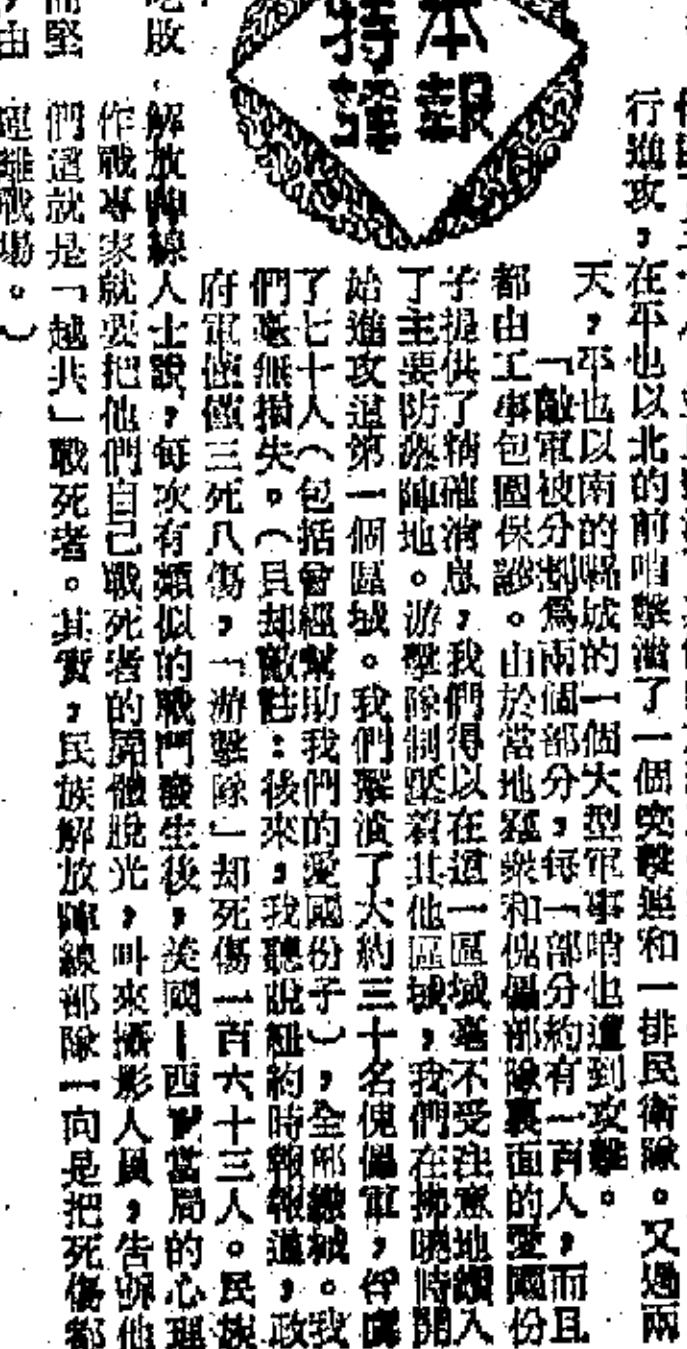 行進攻，在平也以北的前哨擊潰了一個突擊連和一排民衛隊。又過兩
天，平也以南的縣城的一個大型軍事哨也遭到攻擊。
「敵軍被分割爲兩個部分，每一部分約有一百人，而且
都由工事包圍保護。由於當地羣衆和傀儡部隊裏面的愛國份
子提供了精確消息，我們得以在這一區域毫不受注意地鑽入
了主要防禦陣地。游擊隊制壓着其他區域，我們在拂曉時開
始進攻這第一個區域。我們擊潰了大約三十名傀儡軍，俘虜
了七十人（包括曾經幫助我們的愛國份子），全部繳械。我
們毫無損失。（貝却敵註：後來，我聽說紐約時報報道，政
府軍僅僅三死八傷，「游擊隊」却死傷一百六十三人。民族
解放陣線人士說，每次有類似的戰鬥發生後，美國—西貢當局的心理
作戰專家就要把他們自己戰死者的屍體脫光，叫來攝影人員，告訴他
們這就是「越共」戰死者。其實，民族解放陣線部隊一向是把死傷都
運離戰場。）
本報
特譯